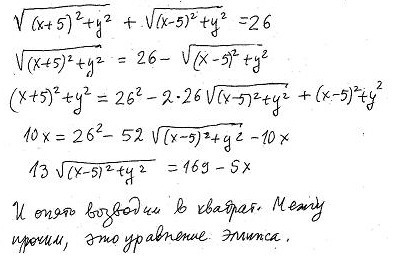 √((x+5)²+y²) + √((x-5)²+y²) = 26
√((x+5)²+y²) = 26 - √((x-5)²+y²)
(x+5)²+y² = 26² - 2·26√((x-5)²+y²) + (x-5)²+y²
10x = 26² - 52√((x-5)²+y²) - 10x
13√((x-5)²+y²) = 169 - 5x
И опять возводим в квадрат. Между
прочим, это уравнение эллипса.